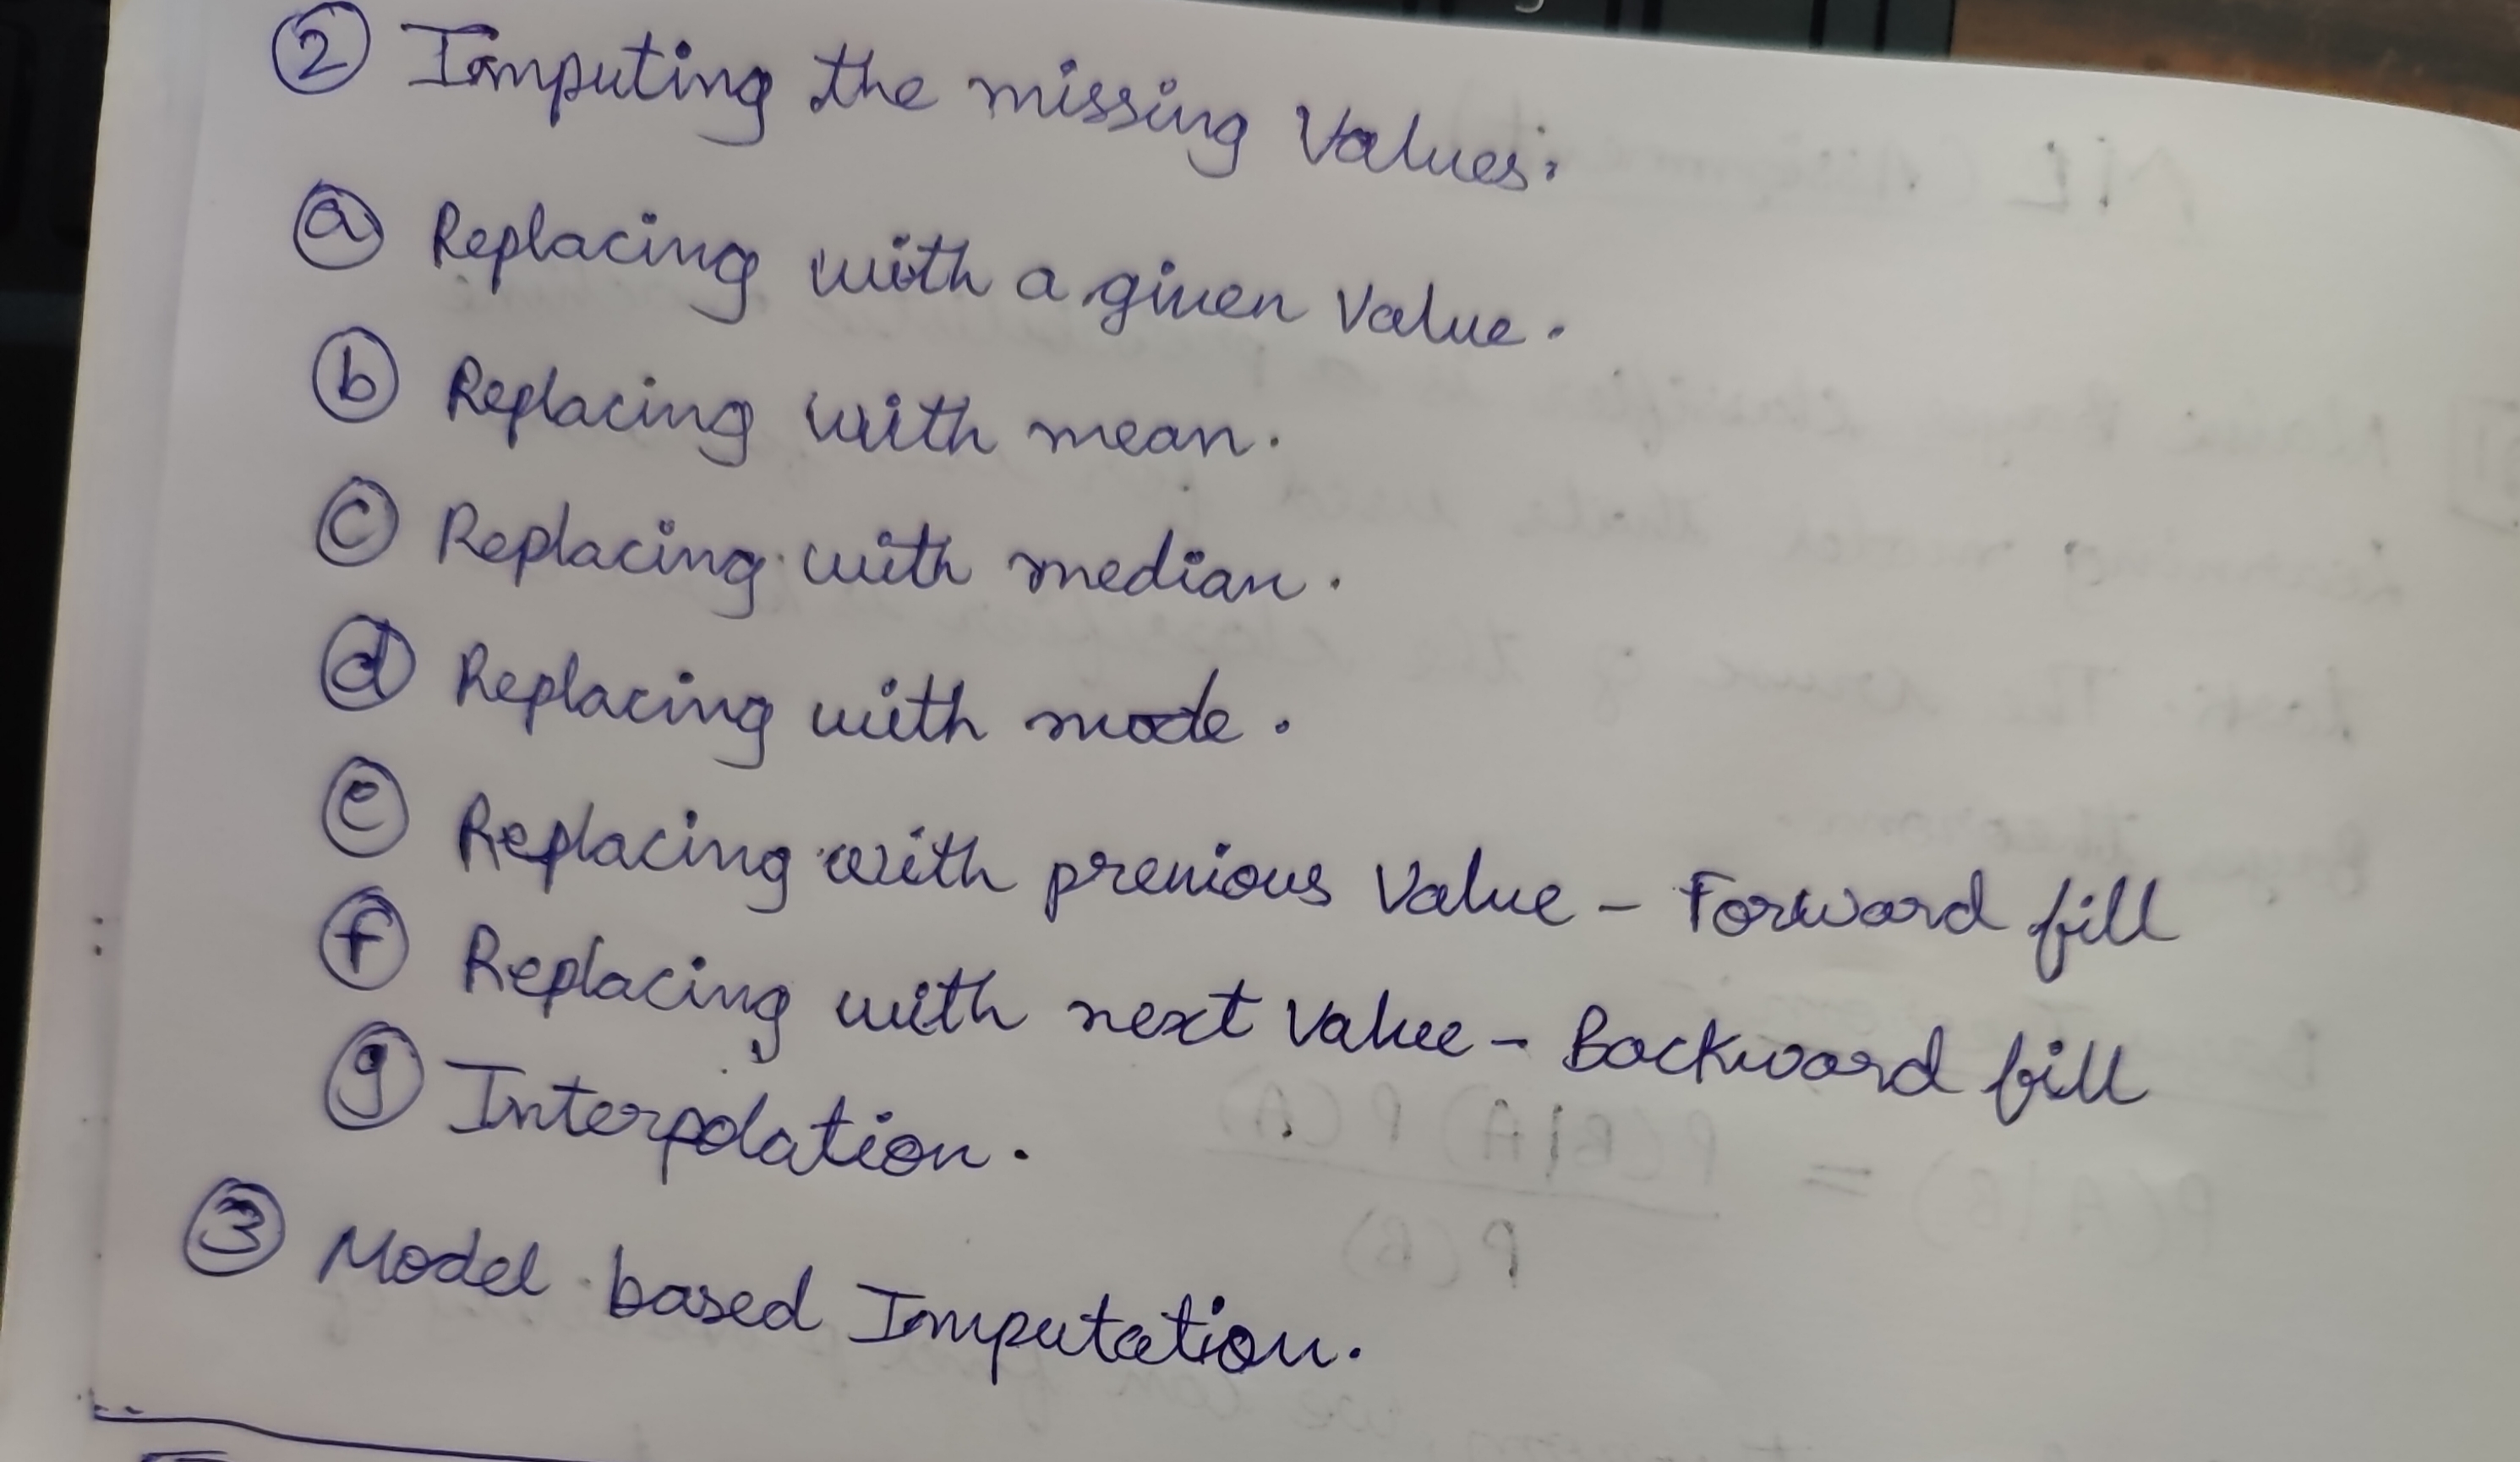 ② Imputing the missing Values:
ⓐ Replacing with a given Value.
ⓑ Replacing with mean.
ⓒ Replacing with median.
ⓓ Replacing with mode.
ⓔ Replacing with previous Value - Forward fill
ⓕ Replacing with next Value - Backward fill
ⓖ Interpolation.
③ Model based Imputation.